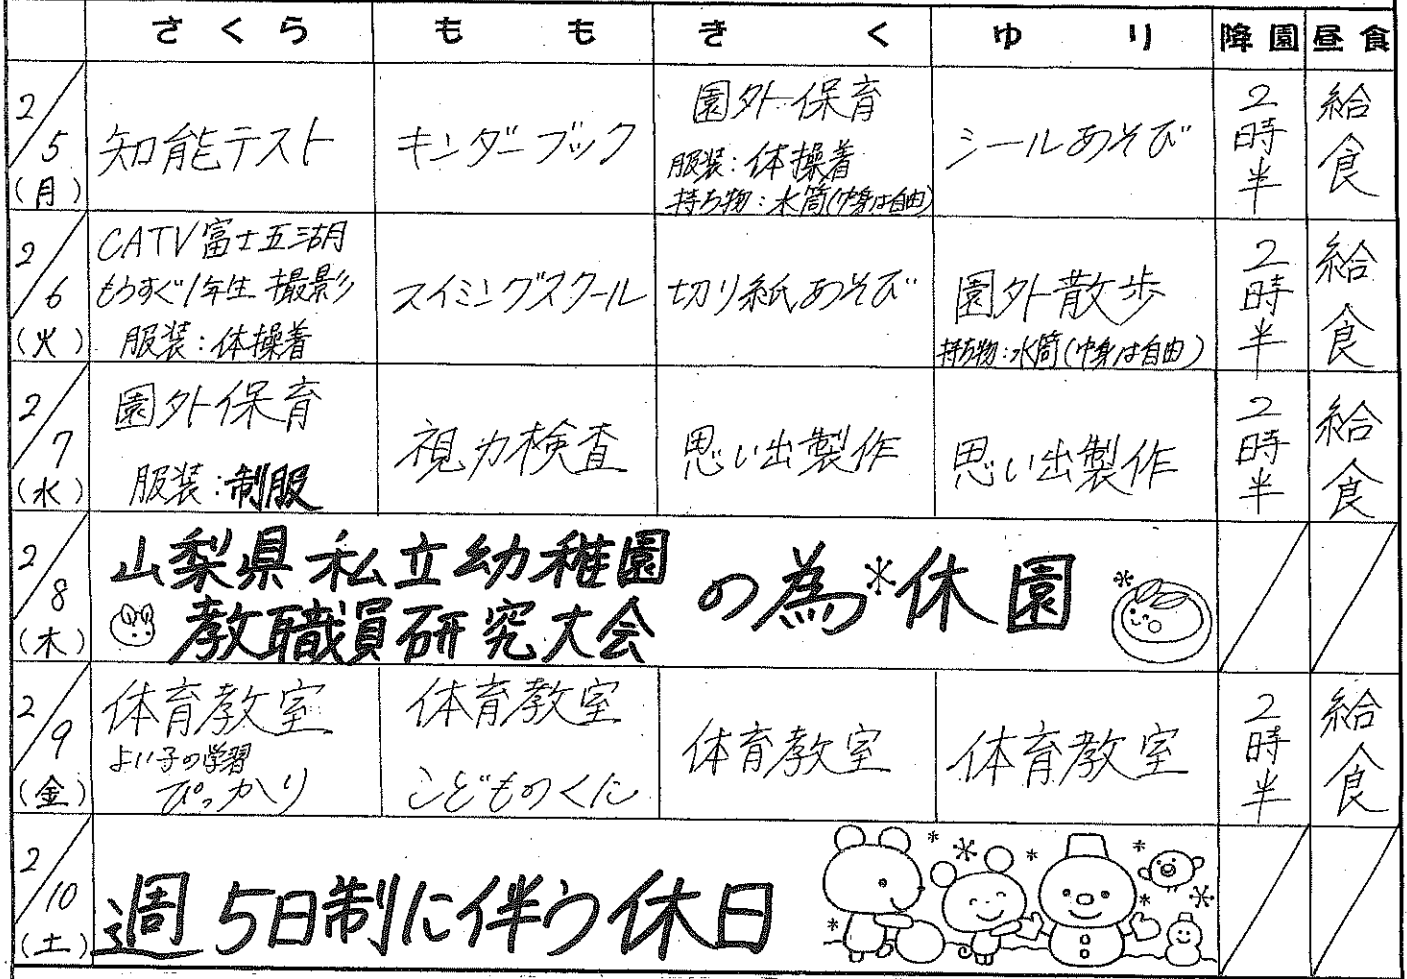 さくら もも きく ゆり 降園 昼食
2/5(月)
知能テスト
キンダーブック
園外保育
服装:体操着
持ち物:水筒(中身は自由)
シールあそび
2時半
給食
2/6(火)
CATV富士五湖
もうすぐ1年生 撮影
服装:体操着
スイミングスクール
切り紙あそび
園外散歩
持ち物:水筒(中身は自由)
2時半
給食
2/7(水)
園外保育
服装:制服
視力検査
思い出製作
思い出製作
2時半
給食
2/8(木)
山梨県私立幼稚園
教職員研究大会
の為 休園
2/9(金)
体育教室
よい子の学習
ぴっかり
体育教室
こどものくに
体育教室
体育教室
2時半
給食
2/10(土)
週5日制に伴う休日